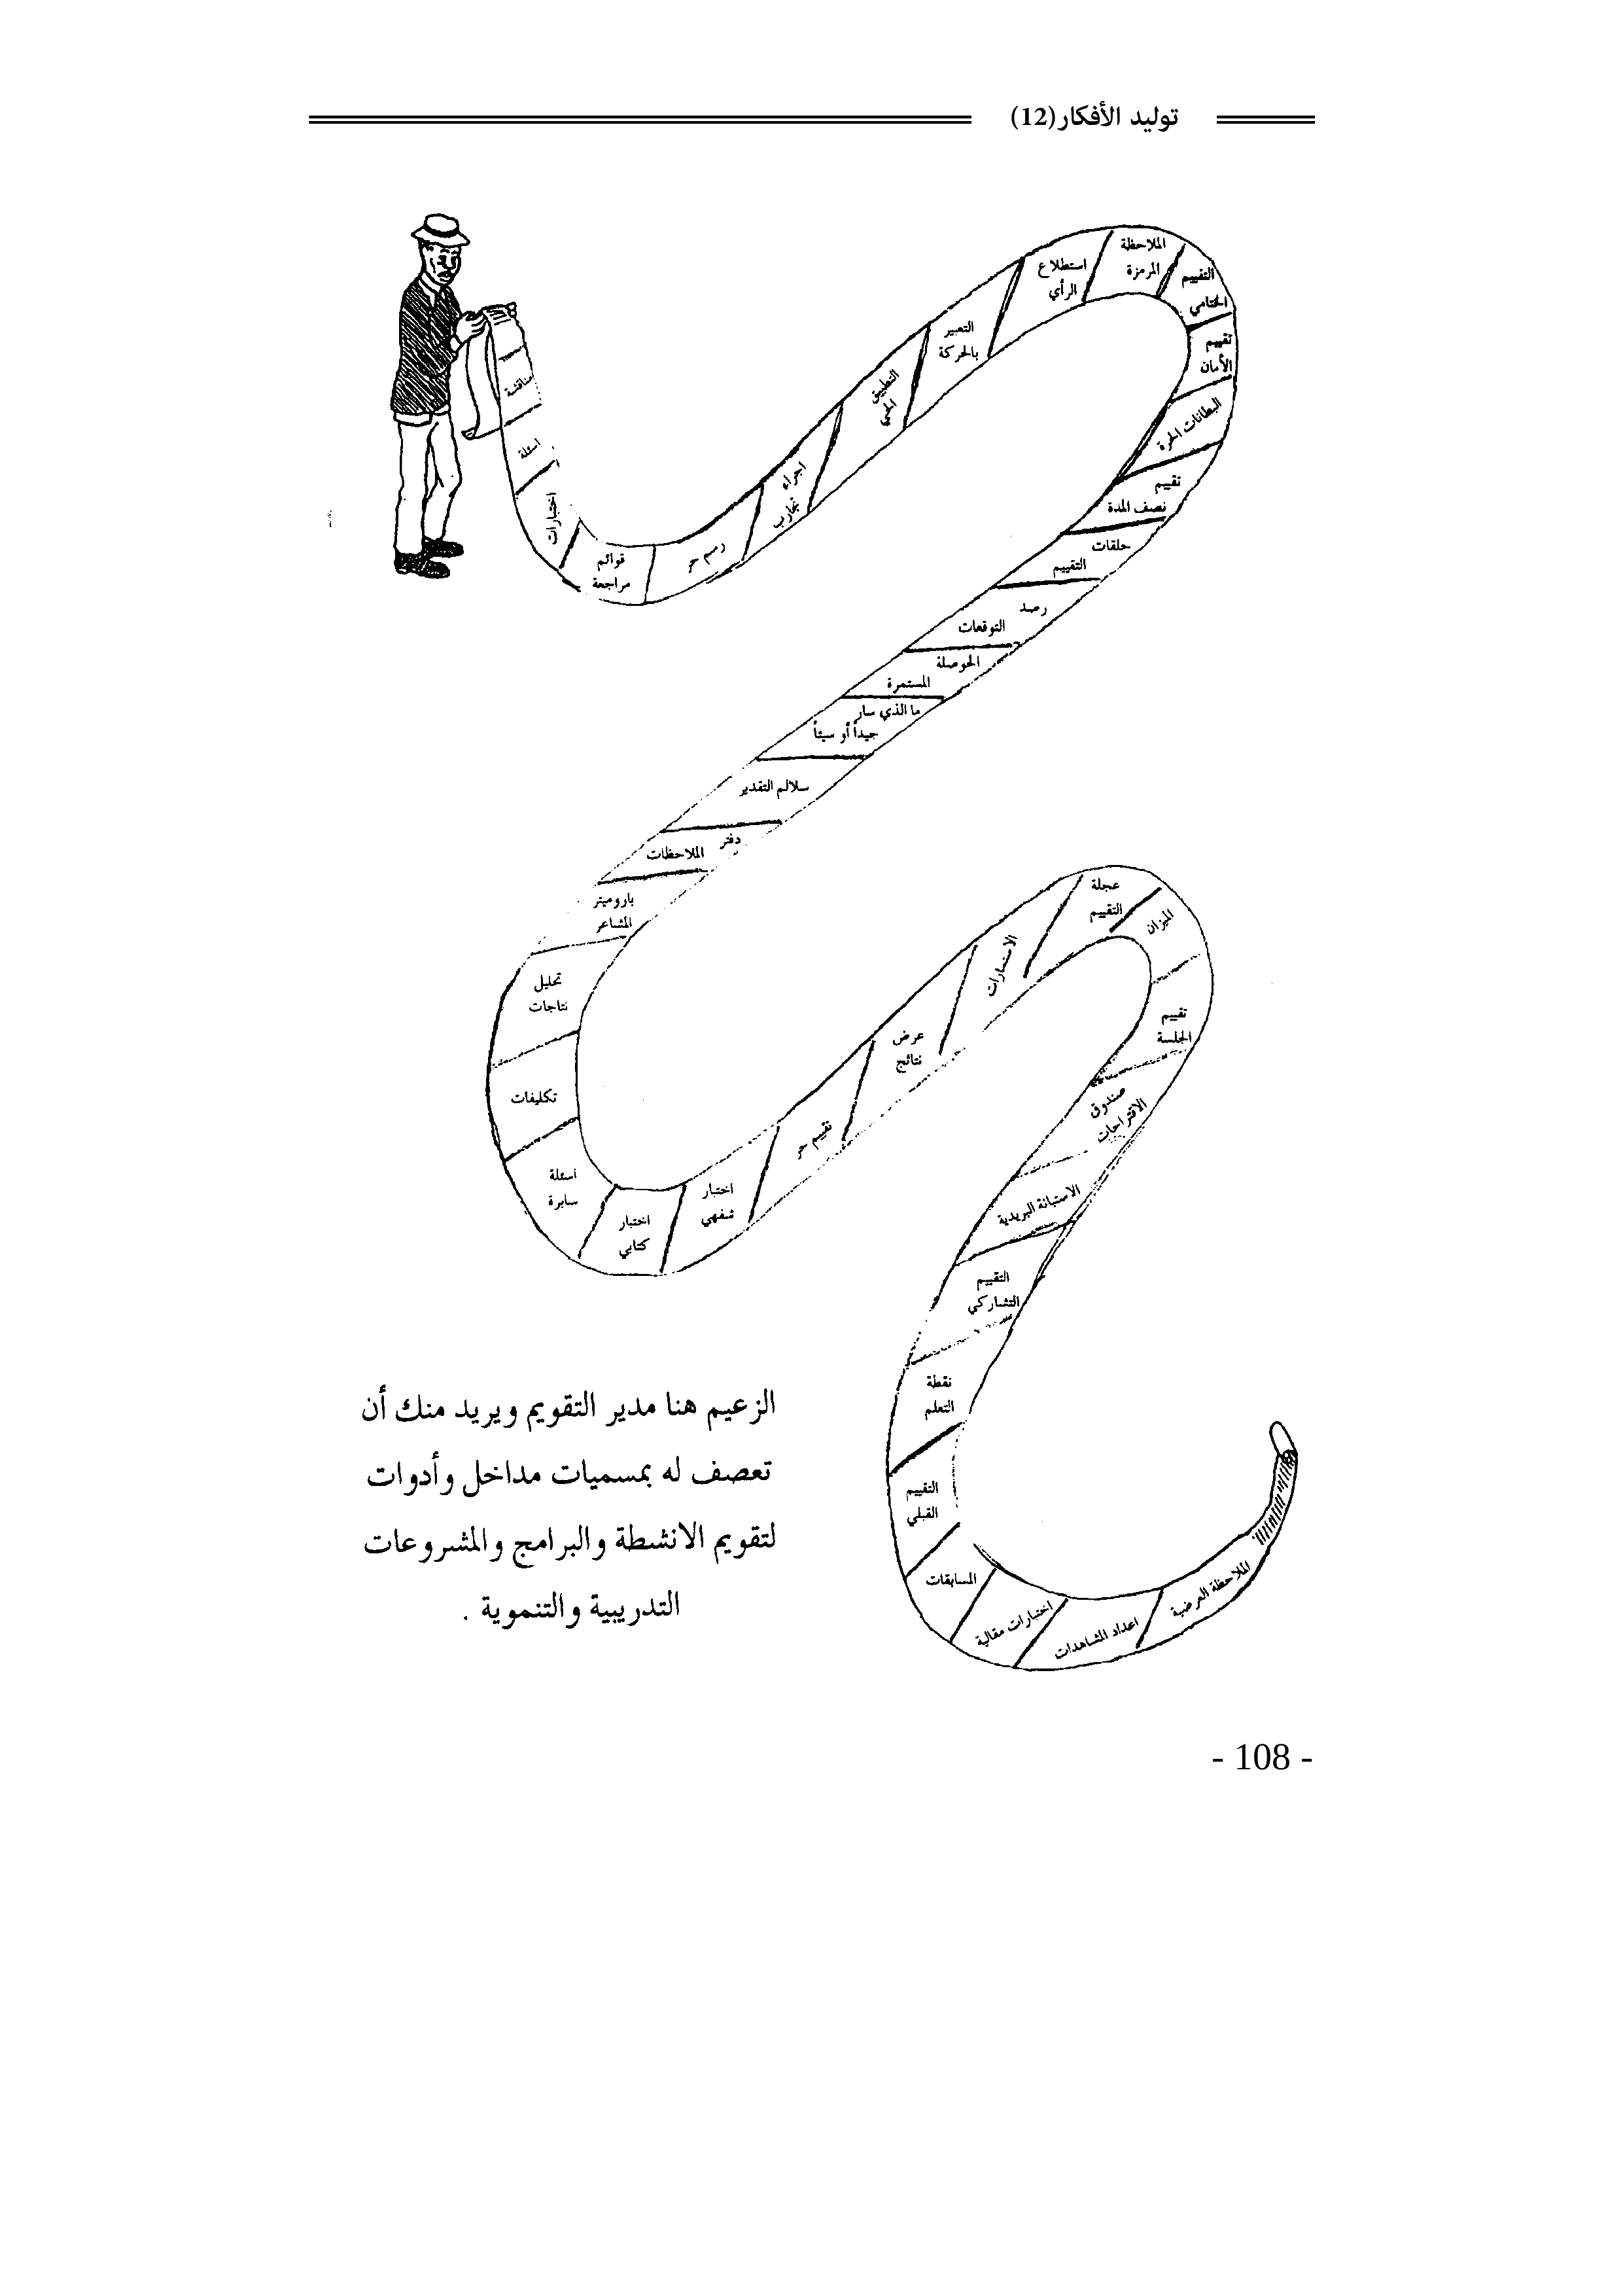 توليد الأفكار(12)
مناقشة
اسئلة
اختبارات
قوائم
مراجعة
رسم حر
اجراء
تجارب
التطبيق
الحي
التعبير
بالحركة
استطلاع
الرأي
الملاحظة
المرمزة
التقييم
الختامي
تقييم
الأمان
البطاقات الحرة
تقييم
نصف المدة
حلقات
التقييم
رصد
التوقعات
الحوصلة
المستمرة
ما الذي سار
جيداً أو سيئاً
سلالم التقدير
دفتر
الملاحظات
باروميتر
المشاعر
تحليل
نتاجات
تكليفات
اسئلة
سابرة
اختبار
كتابي
اختبار
شفهي
تقييم حر
عرض
نتائج
الاستمارات
عجلة
التقييم
الميزان
تقييم
الجلسة
صندوق
الاقتراحات
الاستبانة البريدية
التقييم
التشاركي
نقطة
التعلم
التقييم
القبلي
المسابقات
اختبارات مقالية
اعداد المشاهدات
الملاحظة العرضية
الزعيم هنا مدير التقويم ويريد منك أن
تعصف له بمسميات مداخل وأدوات
لتقويم الانشطة والبرامج والمشروعات
التدريبية والتنموية .
- 108 -